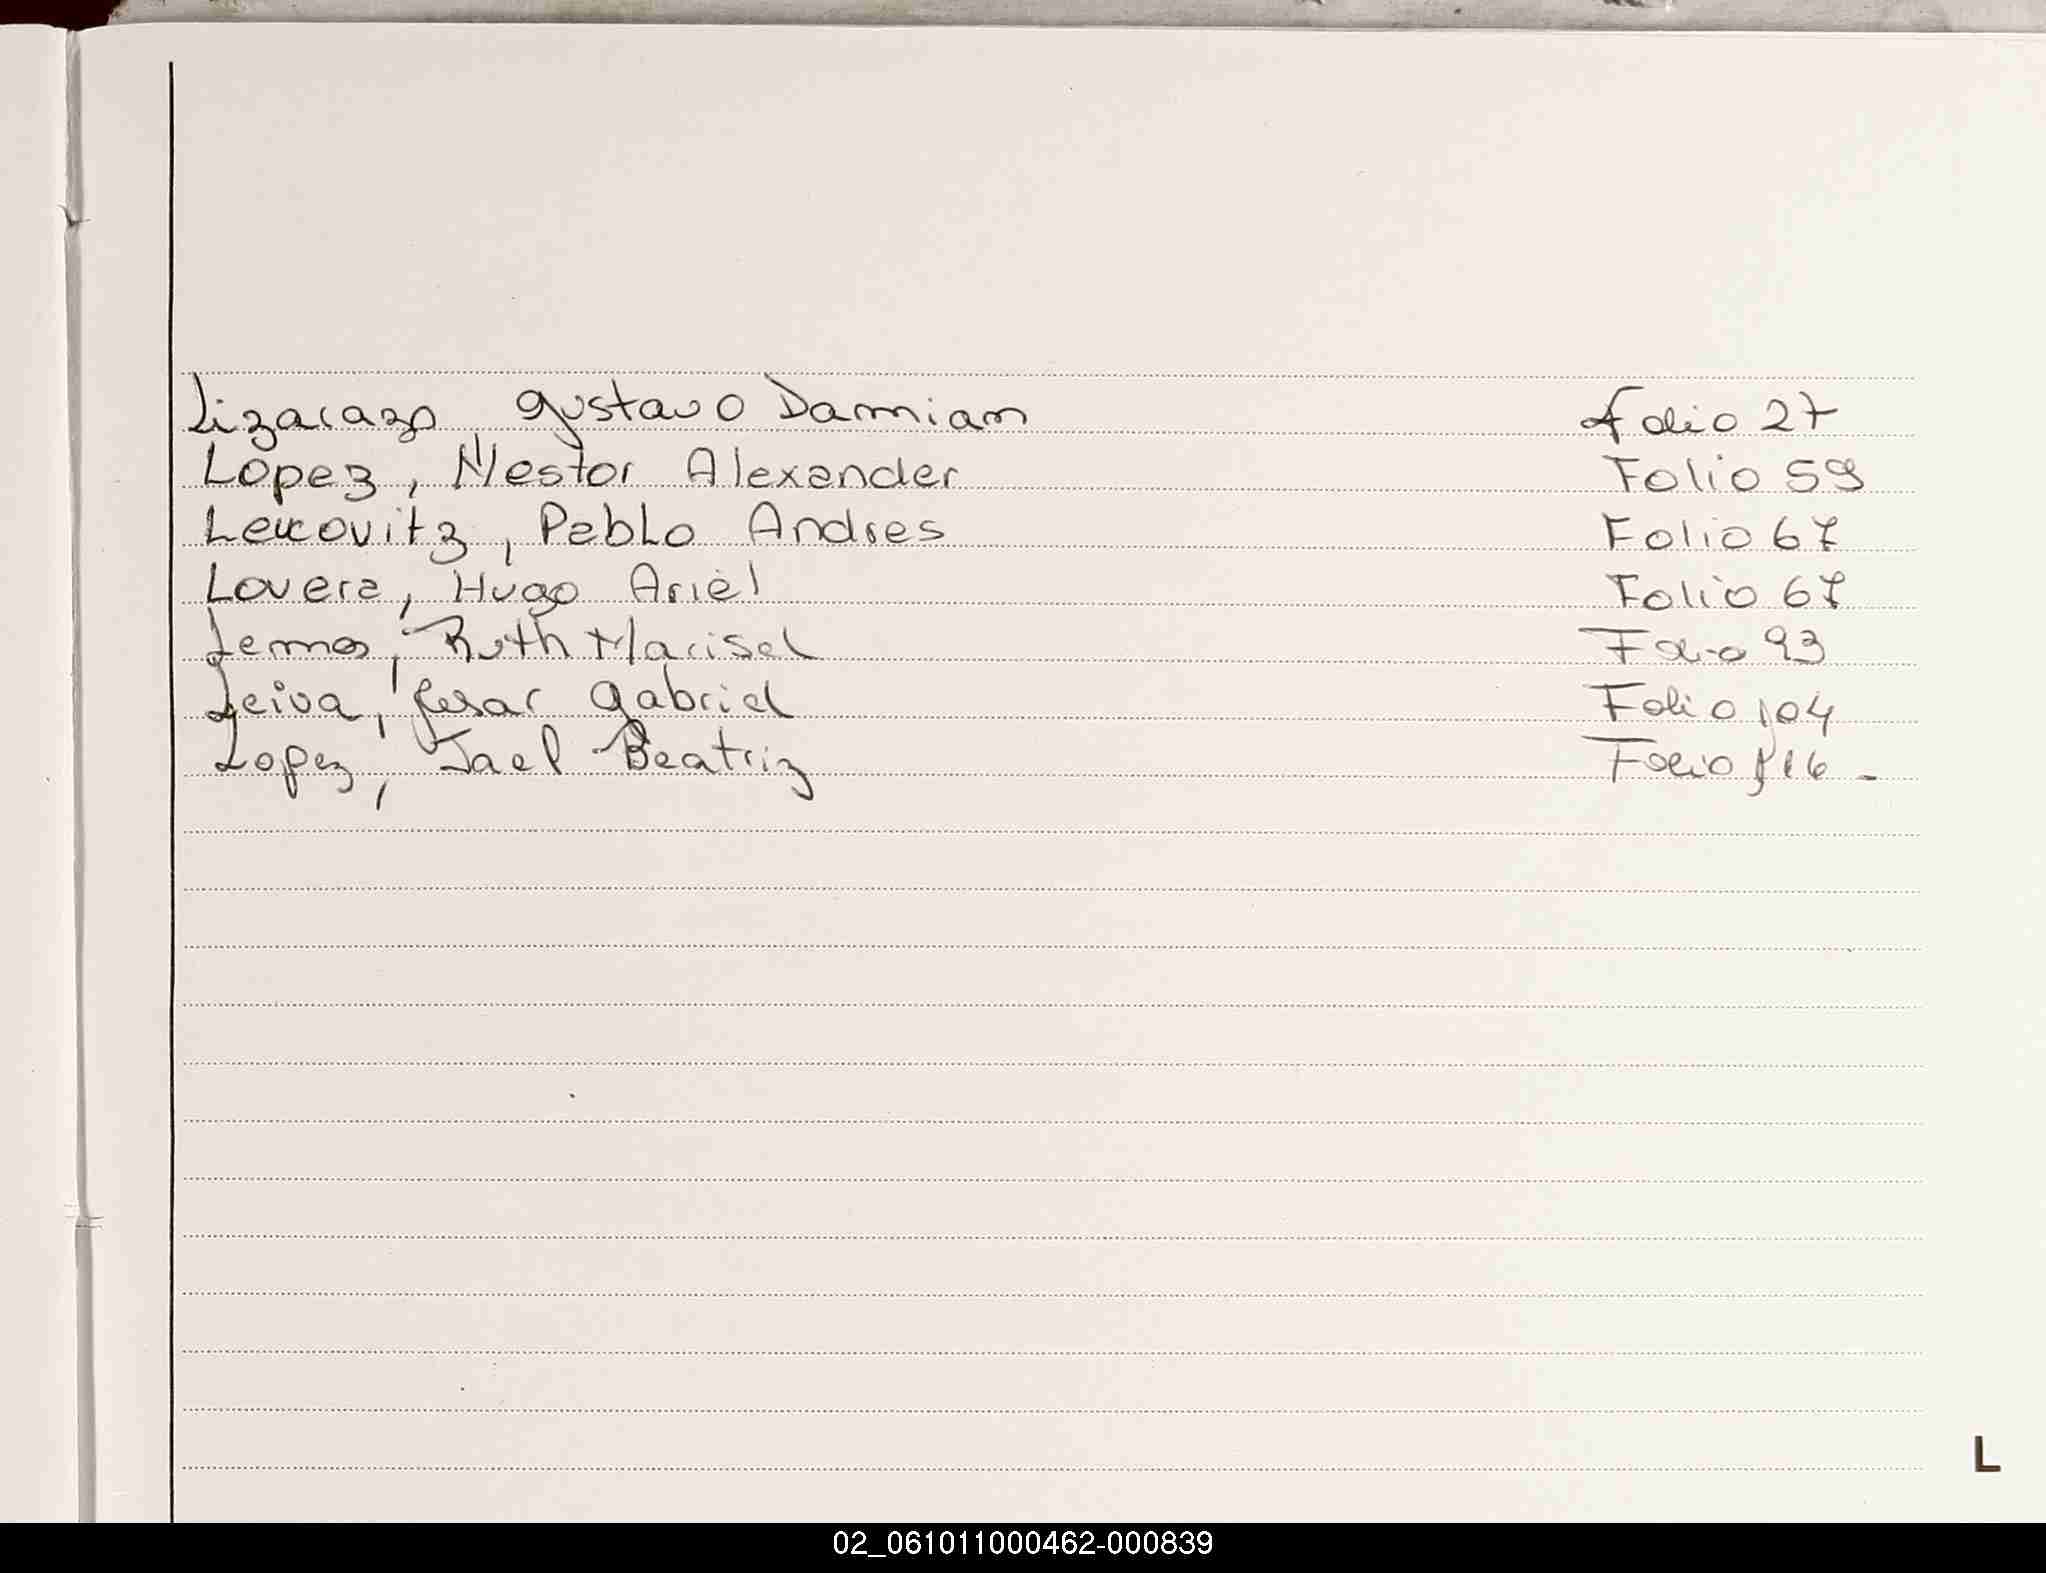 Lizarazo Gustavo Damian Folio 27
Lopez, Nestor Alexander Folio 59
Leucovitz, Pablo Andres Folio 67
Lovera, Hugo Ariel Folio 67
Lemos, Ruth Marisel Folio 93
Leiva, Cesar Gabriel Folio 104
Lopez, Jael Beatriz Folio 116 -
L
02_061011000462-000839